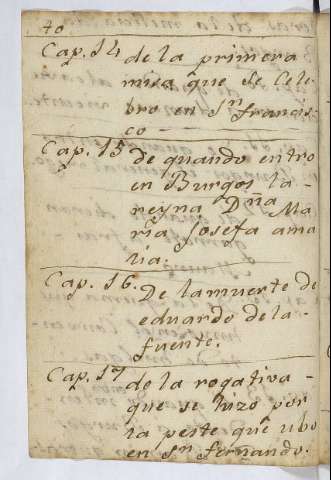 40
Cap. 14 de la primera
misa que se Cele-
bro en Sn francis-
co
Cap. 15 de quando entro
en Burgos la
reyna Dña Ma
ria Josefa ama
lia.
Cap. 16. De la muerte de
eduardo de la
fuente.
Cap. 17 de la rogativa
que se hizo por
la peste que ubo
en Sn. fernando.